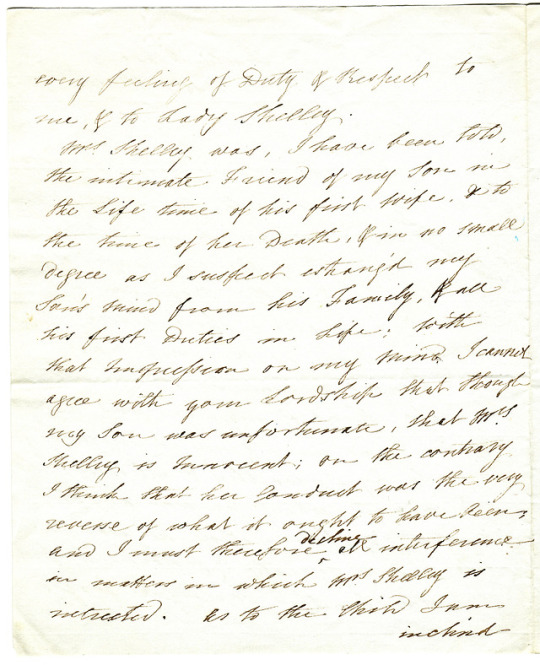 every feeling of Duty & Respect to
me, & to Lady Shelley.
Mrs Shelley was, I have been told,
the intimate Friend of my Son in
the Life time of his first Wife, & to
the time of her Death, & in no small
degree as I suspect estrang'd my
Son's mind from his Family, & all
his first Duties in Life; with
that Impression on my Mind I cannot
agree with your Lordship that though
my Son was unfortunate, that Mrs
Shelley is Innocent; on the contrary
I think that her Conduct was the very
reverse of what it ought to have been,
and I must therefore decline all interference
in matters in which Mrs Shelley is
intrested. As to the Child I am
inclind